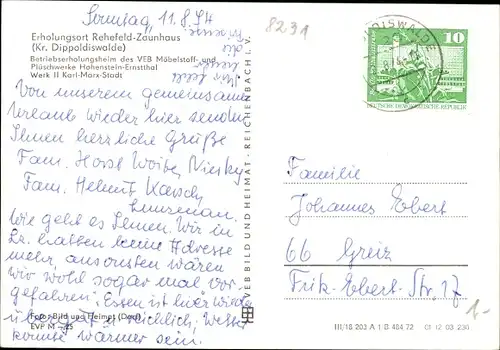 Sonntag 11.8.74
Erholungsort Rehefeld-Zaunhaus
(Kr. Dippoldiswalde)
Betriebserholungsheim des VEB Möbelstoff- und
Plüschwerke Hohenstein-Ernstthal
Werk II Karl-Marx-Stadt
Von unserem gemeinsamen
Urlaub wieder hier senden
Ihnen herzliche Grüße
Fam. Horst Niesky
Fam. Helmut
Lunzenau.
Wie geht es Ihnen. Wir in
Lz. hatten keine Adresse
mehr, ansonsten wären
wir wohl sogar mal vor-
gefahren. Essen ist hier wieder
Foto: Bild und Heimat (Doal)
EVP M -,25
gut u. reichlich, Wetter
könnte wärmer sein.
VEB BILD UND HEIMAT · REICHENBACH I. V.
8231
DEUTSCHE DEMOKRATISCHE REPUBLIK
10
Familie
Johannes Ebert
66 Greiz
Fritz-Ebert-Str. 17
III/18 203 A 1 B 484 72 01 12 03 230
1.-